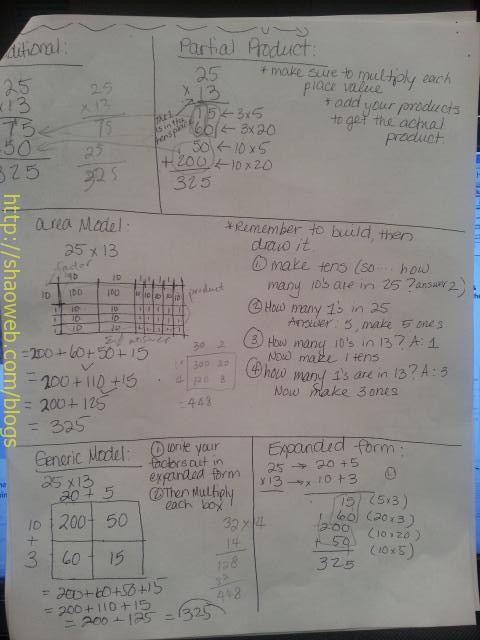 ditional:
25
x13
75
50
325
25
x 13
75
25
325
Partial Product:
25
x 13
15 ← 3x5
60 ← 3x20
50 ← 10x5
+200 ← 10x20
325
* make sure to multiply each
place value
* add your products
to get the actual
product.
area Model:
25 x 13
factor
10 10 1 1 1 1 1
10 100 100 10 10 10 10 10
product
answer
=200+60+50+15
= 200+110+15
= 200+125
= 325
30 2
300 20
120 8
=448
*Remember to build, then
draw it.
① make tens (so.... how
many 10's are in 25? answer 2)
② How many 1's in 25
Answer: 5, make 5 ones
③ How many 10's in 13? A: 1
Now make 1 tens
④ how many 1's are in 13? A: 3
Now make 3 ones
Generic Model:
25 x13
20 + 5
10 200 50
+
3 60 15
= 200+60+50+15
= 200+110+15
= 200+125 = 325
① write your
factors out in
expanded form
② Then Multiply
each box
32 x 14
14
128
32
448
Expanded form:
25 → 20+5
x13 → x 10+3
15 (5x3)
60 (20x3)
200 (10x20)
+ 50 (10x5)
325
http://shaoweb.com/blogs